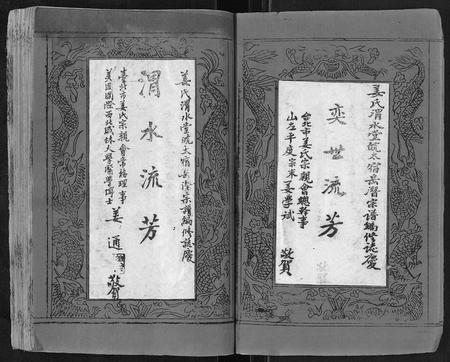 姜氏渭水堂皖太宿岳曆宗譜編修誌慶
奕世流芳
台北市姜氏宗親會總幹事
山左平度宗末姜學斌
敬賀
姜氏渭水堂皖太宿岳
宗譜編修誌慶
渭水流芳
臺北市姜氏宗親會常務理事
美國國際西北
大學
博士
姜通
敬賀